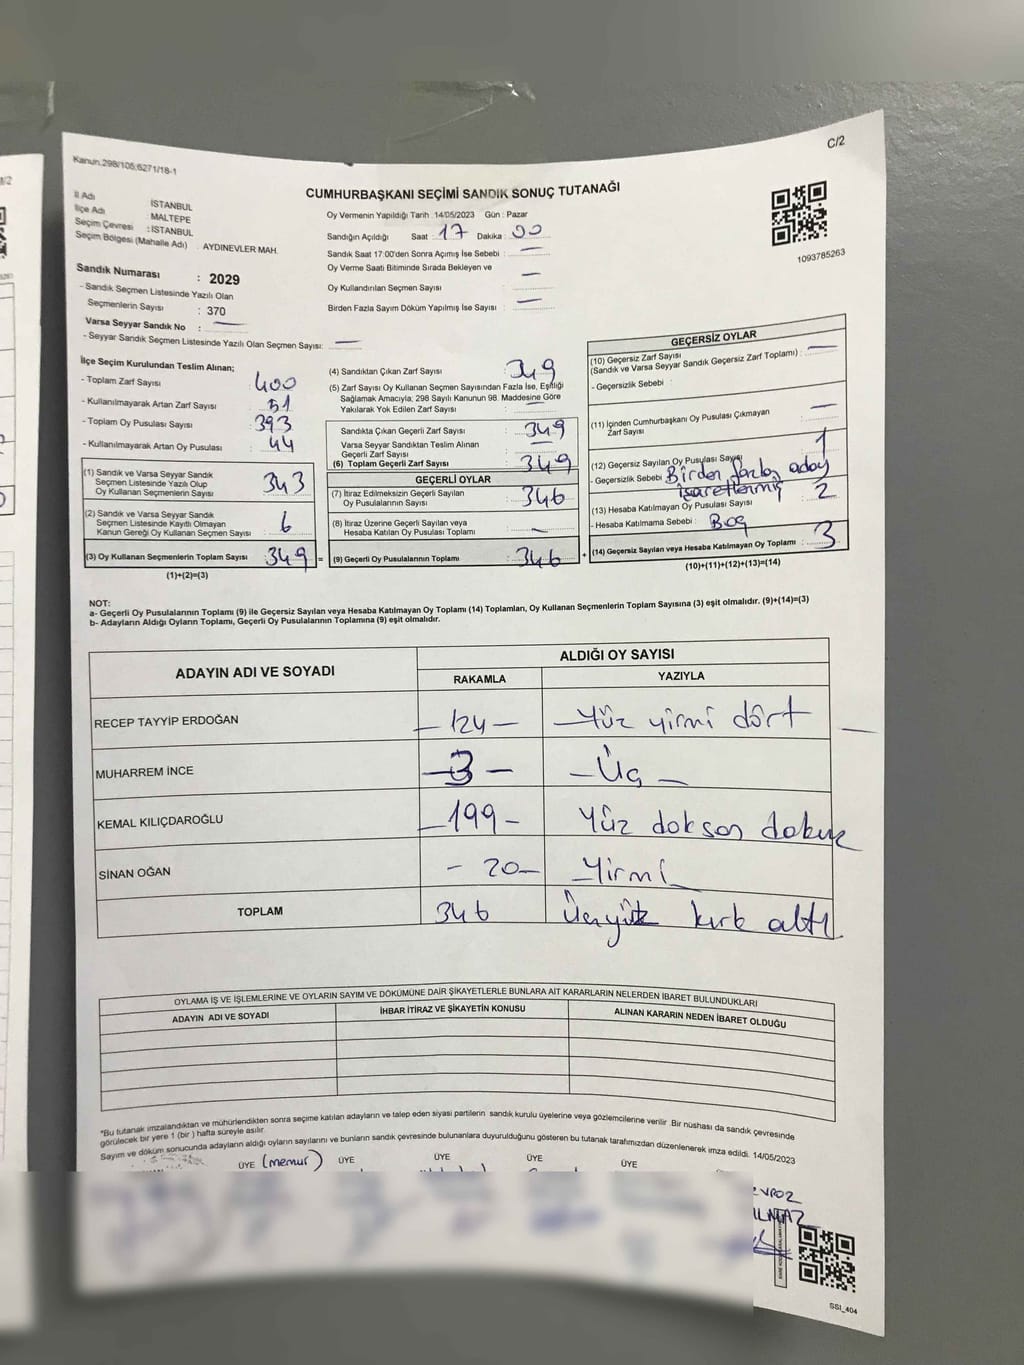 C/2
Kanun.298/105;6271/18-1
CUMHURBAŞKANI SEÇİMİ SANDIK SONUÇ TUTANAĞI
İl Adı : İSTANBUL
İlçe Adı : MALTEPE
Seçim Çevresi : İSTANBUL
Seçim Bölgesi (Mahalle Adı) : AYDINEVLER MAH.
Sandık Numarası : 2029
- Sandık Seçmen Listesinde Yazılı Olan
Seçmenlerin Sayısı : 370
Varsa Seyyar Sandık No : —
- Seyyar Sandık Seçmen Listesinde Yazılı Olan Seçmen Sayısı: —
Oy Vermenin Yapıldığı Tarih : 14/05/2023 Gün : Pazar
Sandığın Açıldığı Saat : 17 Dakika : 00
Sandık Saat 17:00'den Sonra Açımış İse Sebebi : —
Oy Verme Saati Bitiminde Sırada Bekleyen ve
Oy Kullandırılan Seçmen Sayısı —
Birden Fazla Sayım Döküm Yapılmış İse Sayısı : —
1093785263
İlçe Seçim Kurulundan Teslim Alınan;
- Toplam Zarf Sayısı : 400
- Kullanılmayarak Artan Zarf Sayısı : 51
- Toplam Oy Pusulası Sayısı : 393
- Kullanılmayarak Artan Oy Pusulası : 44
(1) Sandık ve Varsa Seyyar Sandık
Seçmen Listesinde Yazılı Olup
Oy Kullanan Seçmenlerin Sayısı : 343
(2) Sandık ve Varsa Seyyar Sandık
Seçmen Listesinde Kayıtlı Olmayan
Kanun Gereği Oy Kullanan Seçmen Sayısı : 6
(3) Oy Kullanan Seçmenlerin Toplam Sayısı : 349 =
(1)+(2)=(3)
(4) Sandıktan Çıkan Zarf Sayısı : 349
(5) Zarf Sayısı Oy Kullanan Seçmen Sayısından Fazla İse, Eşitliği
Sağlamak Amacıyla; 298 Sayılı Kanunun 98. Maddesine Göre
Yakılarak Yok Edilen Zarf Sayısı :
Sandıkta Çıkan Geçerli Zarf Sayısı : 349
Varsa Seyyar Sandıktan Teslim Alınan
Geçerli Zarf Sayısı : —
(6) Toplam Geçerli Zarf Sayısı : 349
GEÇERLİ OYLAR
(7) İtiraz Edilmeksizin Geçerli Sayılan
Oy Pusulalarının Sayısı : 346
(8) İtiraz Üzerine Geçerli Sayılan veya
Hesaba Katılan Oy Pusulası Toplamı : —
(9) Geçerli Oy Pusulalarının Toplamı : 346 +
GEÇERSİZ OYLAR
(10) Geçersiz Zarf Sayısı
(Sandık ve Varsa Seyyar Sandık Geçersiz Zarf Toplamı) : —
- Geçersizlik Sebebi :
(11) İçinden Cumhurbaşkanı Oy Pusulası Çıkmayan
Zarf Sayısı : —
(12) Geçersiz Sayılan Oy Pusulası Sayısı : 1
- Geçersizlik Sebebi : Birden fazla aday
işaretlenmiş
(13) Hesaba Katılmayan Oy Pusulası Sayısı : 2
- Hesaba Katılmama Sebebi : Boş
(14) Geçersiz Sayılan veya Hesaba Katılmayan Oy Toplamı : 3
(10)+(11)+(12)+(13)=(14)
NOT:
a- Geçerli Oy Pusulalarının Toplamı (9) ile Geçersiz Sayılan veya Hesaba Katılmayan Oy Toplamı (14) Toplamları, Oy Kullanan Seçmenlerin Toplam Sayısına (3) eşit olmalıdır. (9)+(14)=(3)
b- Adayların Aldığı Oyların Toplamı, Geçerli Oy Pusulalarının Toplamına (9) eşit olmalıdır.
ADAYIN ADI VE SOYADI ALDIĞI OY SAYISI
RAKAMLA YAZIYLA
RECEP TAYYİP ERDOĞAN — 124 — — Yüz yirmi dört —
MUHARREM İNCE — 3 — — Üç —
KEMAL KILIÇDAROĞLU — 199 — Yüz doksan dokuz
SİNAN OĞAN — 20 — — Yirmi —
TOPLAM 346 Üçyüz kırk altı
OYLAMA İŞ VE İŞLEMLERİNE VE OYLARIN SAYIM VE DÖKÜMÜNE DAİR ŞİKAYETLERLE BUNLARA AİT KARARLARIN NELERDEN İBARET BULUNDUKLARI
ADAYIN ADI VE SOYADI İHBAR İTİRAZ VE ŞİKAYETİN KONUSU ALINAN KARARIN NEDEN İBARET OLDUĞU
*Bu tutanak imzalandıktan ve mühürlendikten sonra seçime katılan adayların ve talep eden siyasi partilerin sandık kurulu üyelerine veya gözlemcilerine verilir. Bir nüshası da sandık çevresinde
görülecek bir yere 1 (bir) hafta süreyle asılır.
Sayım ve döküm sonucunda adayların aldığı oyların sayılarını ve bunların sandık çevresinde bulunanlara duyurulduğunu gösteren bu tutanak tarafımızdan düzenlenerek imza edildi. 14/05/2023
ÜYE (memur) ÜYE ÜYE ÜYE ÜYE
SSI_404